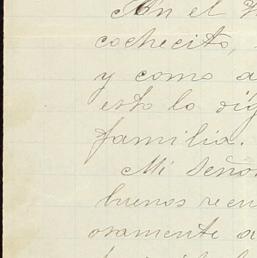 En el
cochecito,
y como a
esto lo dig
familia.
Mi Seño
buenos recu
oramente a